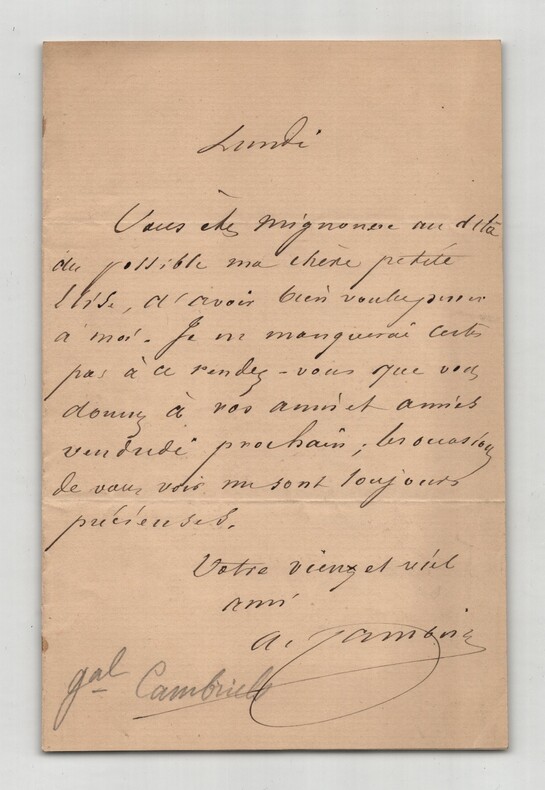 Lundi
Vous êtes mignonne au delà
du possible ma chère petite
Élise, d'avoir bien voulu penser
à moi. Je ne manquerai certes
pas à ce rendez-vous que vous
donnez à vos amis et amies
vendredi prochain, les occasions
de vous voir me sont toujours
précieuses.
Votre vieux et réel
ami
a. Cambriels
gal Cambriels